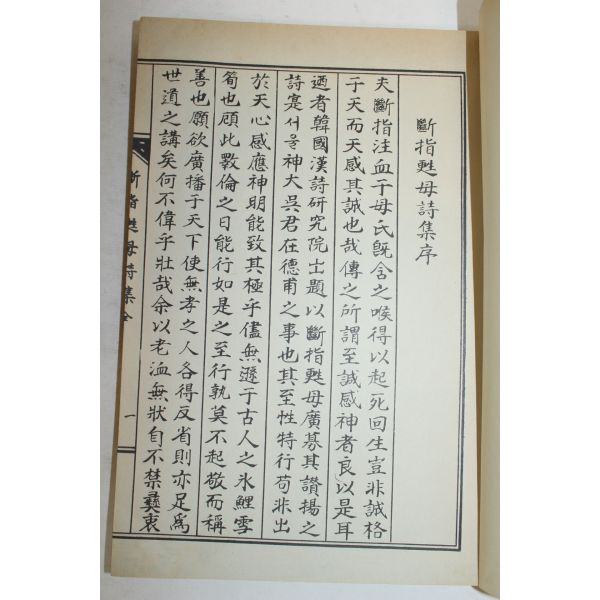 斷指甦母詩集序
夫斷指注血于母氏旣含之喉得以起死回生豈非誠格
于天而天感其誠也哉傳之所謂至誠感神者良以是耳
迺者韓國漢詩硏究院出題以斷指甦母廣募其讚揚之
詩寔서울神大吳君在德甫之事也其至性特行苟非出
於天心感應神明能致其極乎儘無遜于古人之氷鯉雪
筍也顧此斁倫之日能行如是之至行孰莫不起敬而稱
善也願欲廣播于天下使無孝之人各得反省則亦足爲
世道之講矣何不偉乎壯哉余以老洫無狀自不禁彛衷
斷指甦母詩集全
一